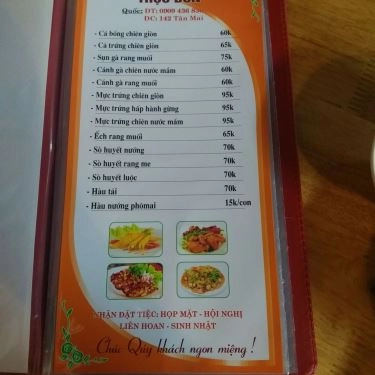 THỰC ĐƠN
Quốc: ĐT: 0909 436
ĐC: 142 Tân Mai
- Cá bóng chiên giòn 60k
- Cá trứng chiên giòn 65k
- Sụn gà rang muối 75k
- Cánh gà chiên nước mắm 60k
- Cánh gà rang muối 60k
- Mực trứng chiên giòn 95k
- Mực trứng hấp hành gừng 95k
- Mực trứng chiên nước mắm 95k
- Ếch rang muối 65k
- Sò huyết nướng 70k
- Sò huyết rang me 70k
- Sò huyết luộc 70k
- Hàu tái 70k
- Hàu nướng phômai 15k/con
NHẬN ĐẶT TIỆC: HỌP MẶT - HỘI NGHỊ
LIÊN HOAN - SINH NHẬT
Chúc Qúy khách ngon miệng !